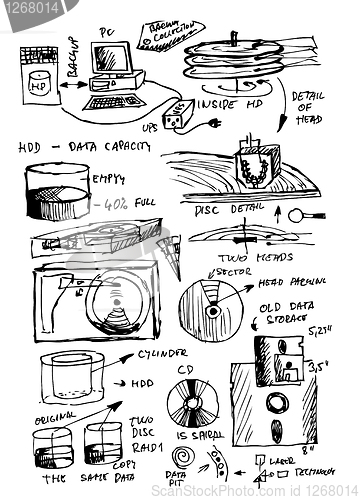 © StockPhotosArt - http://www.StockPhotosArt.com
1268014
PC
BACKUP
COLLECTION
BACKUP
HD
UPS
INSIDE HD
DETAIL
OF
HEAD
HDD - DATA CAPACITY
EMPTY
-40% FULL
DISC DETAIL
TWO HEADS
SECTOR
HEAD PARKING
OLD DATA
STORAGE
5,25"
3,5"
8"
CYLINDER
HDD
CD
IS SPIRAL
ORIGINAL
TWO
DISC
RAID1
COPY
THE SAME DATA
DATA
PIT
LASER
TECHNOLOGY
1268014